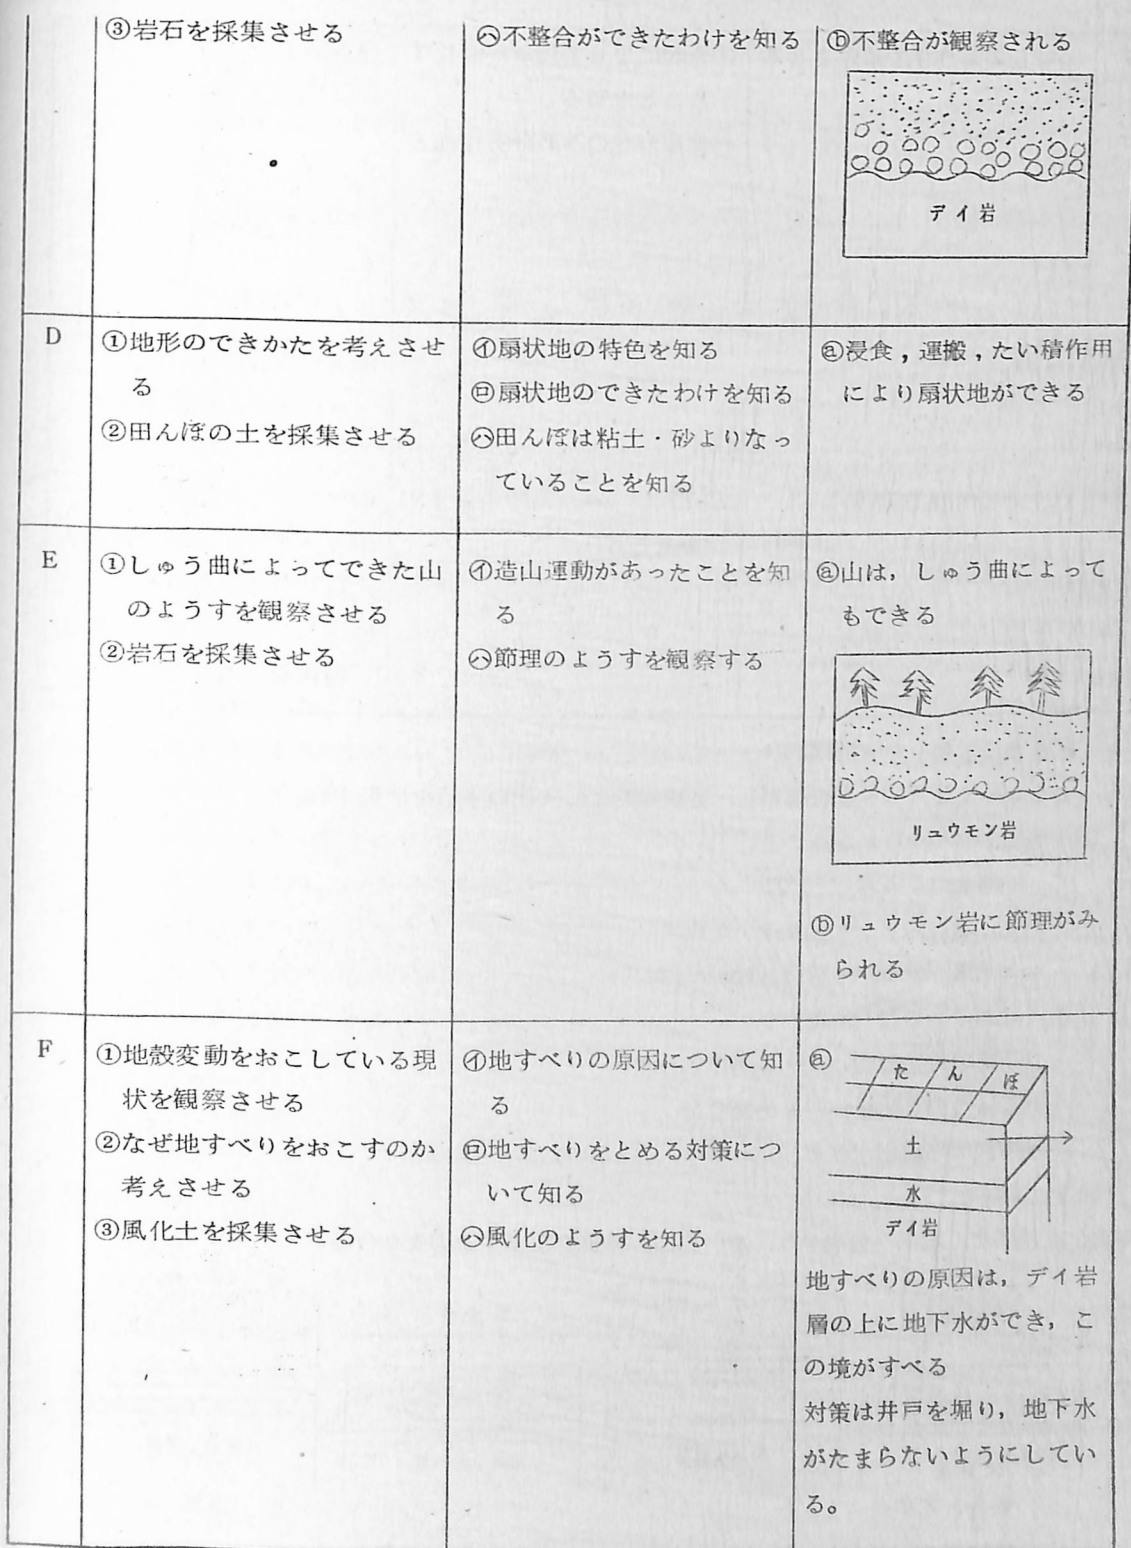 ③岩石を採集させる
㋩不整合ができたわけを知る
ⓑ不整合が観察される
デイ岩
D
①地形のできかたを考えさせ
る
②田んぼの土を採集させる
㋑扇状地の特色を知る
㋺扇状地のできたわけを知る
㋩田んぼは粘土・砂よりなっ
ていることを知る
ⓐ浸食，運搬，たい積作用
により扇状地ができる
E
①しゅう曲によってできた山
のようすを観察させる
②岩石を採集させる
㋑造山運動があったことを知
る
㋩節理のようすを観察する
ⓐ山は，しゅう曲によって
もできる
リュウモン岩
ⓑリュウモン岩に節理がみ
られる
F
①地殻変動をおこしている現
状を観察させる
②なぜ地すべりをおこすのか
考えさせる
③風化土を採集させる
㋑地すべりの原因について知
る
㋺地すべりをとめる対策につ
いて知る
㋩風化のようすを知る
ⓐ
たんぼ
土
水
デイ岩
地すべりの原因は，デイ岩
層の上に地下水ができ，こ
の境がすべる
対策は井戸を堀り，地下水
がたまらないようにしてい
る。